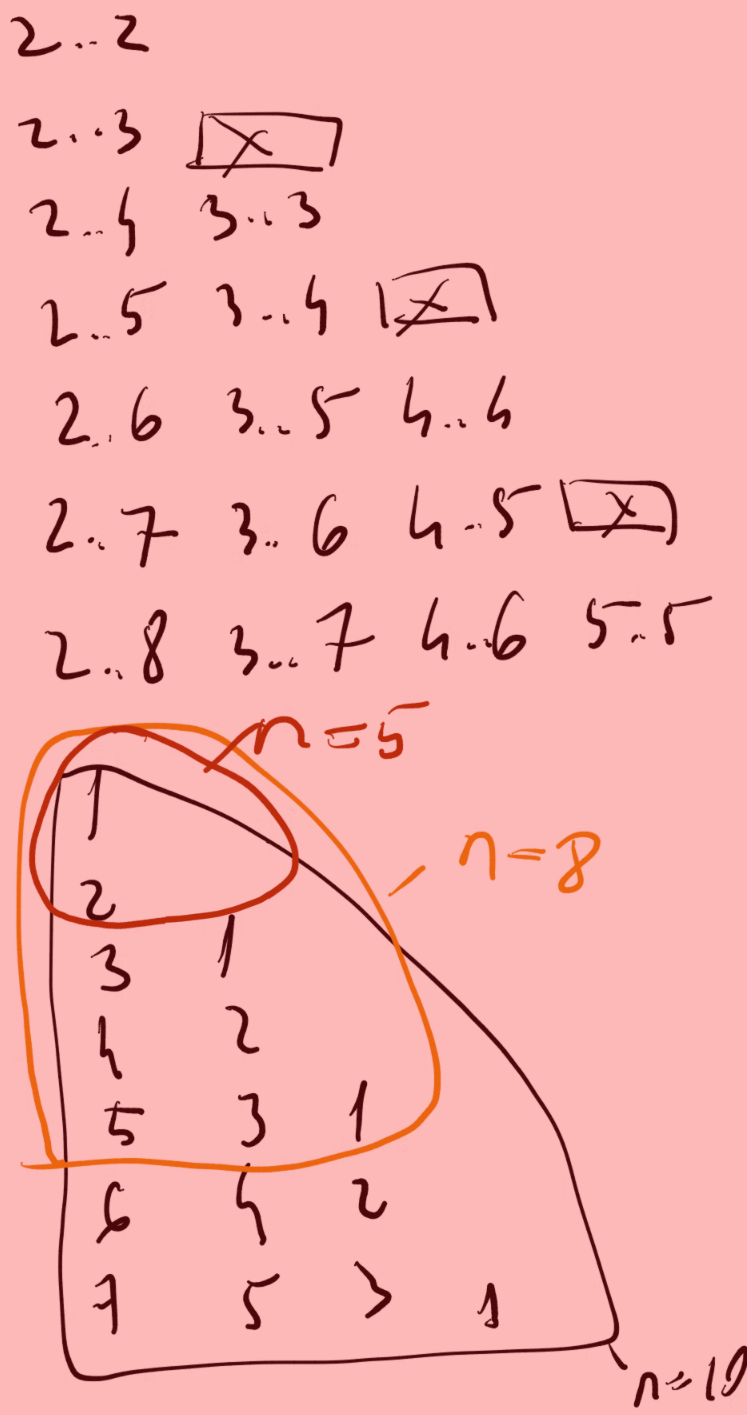 2..2
2..3 X
2..4 3..3
2..5 3..4 X
2..6 3..5 4..4
2..7 3..6 4..5 X
2..8 3..7 4..6 5..5
n=5
1
n=8
2
3 1
4 2
5 3 1
6 4 2
7 5 3 1
n=10